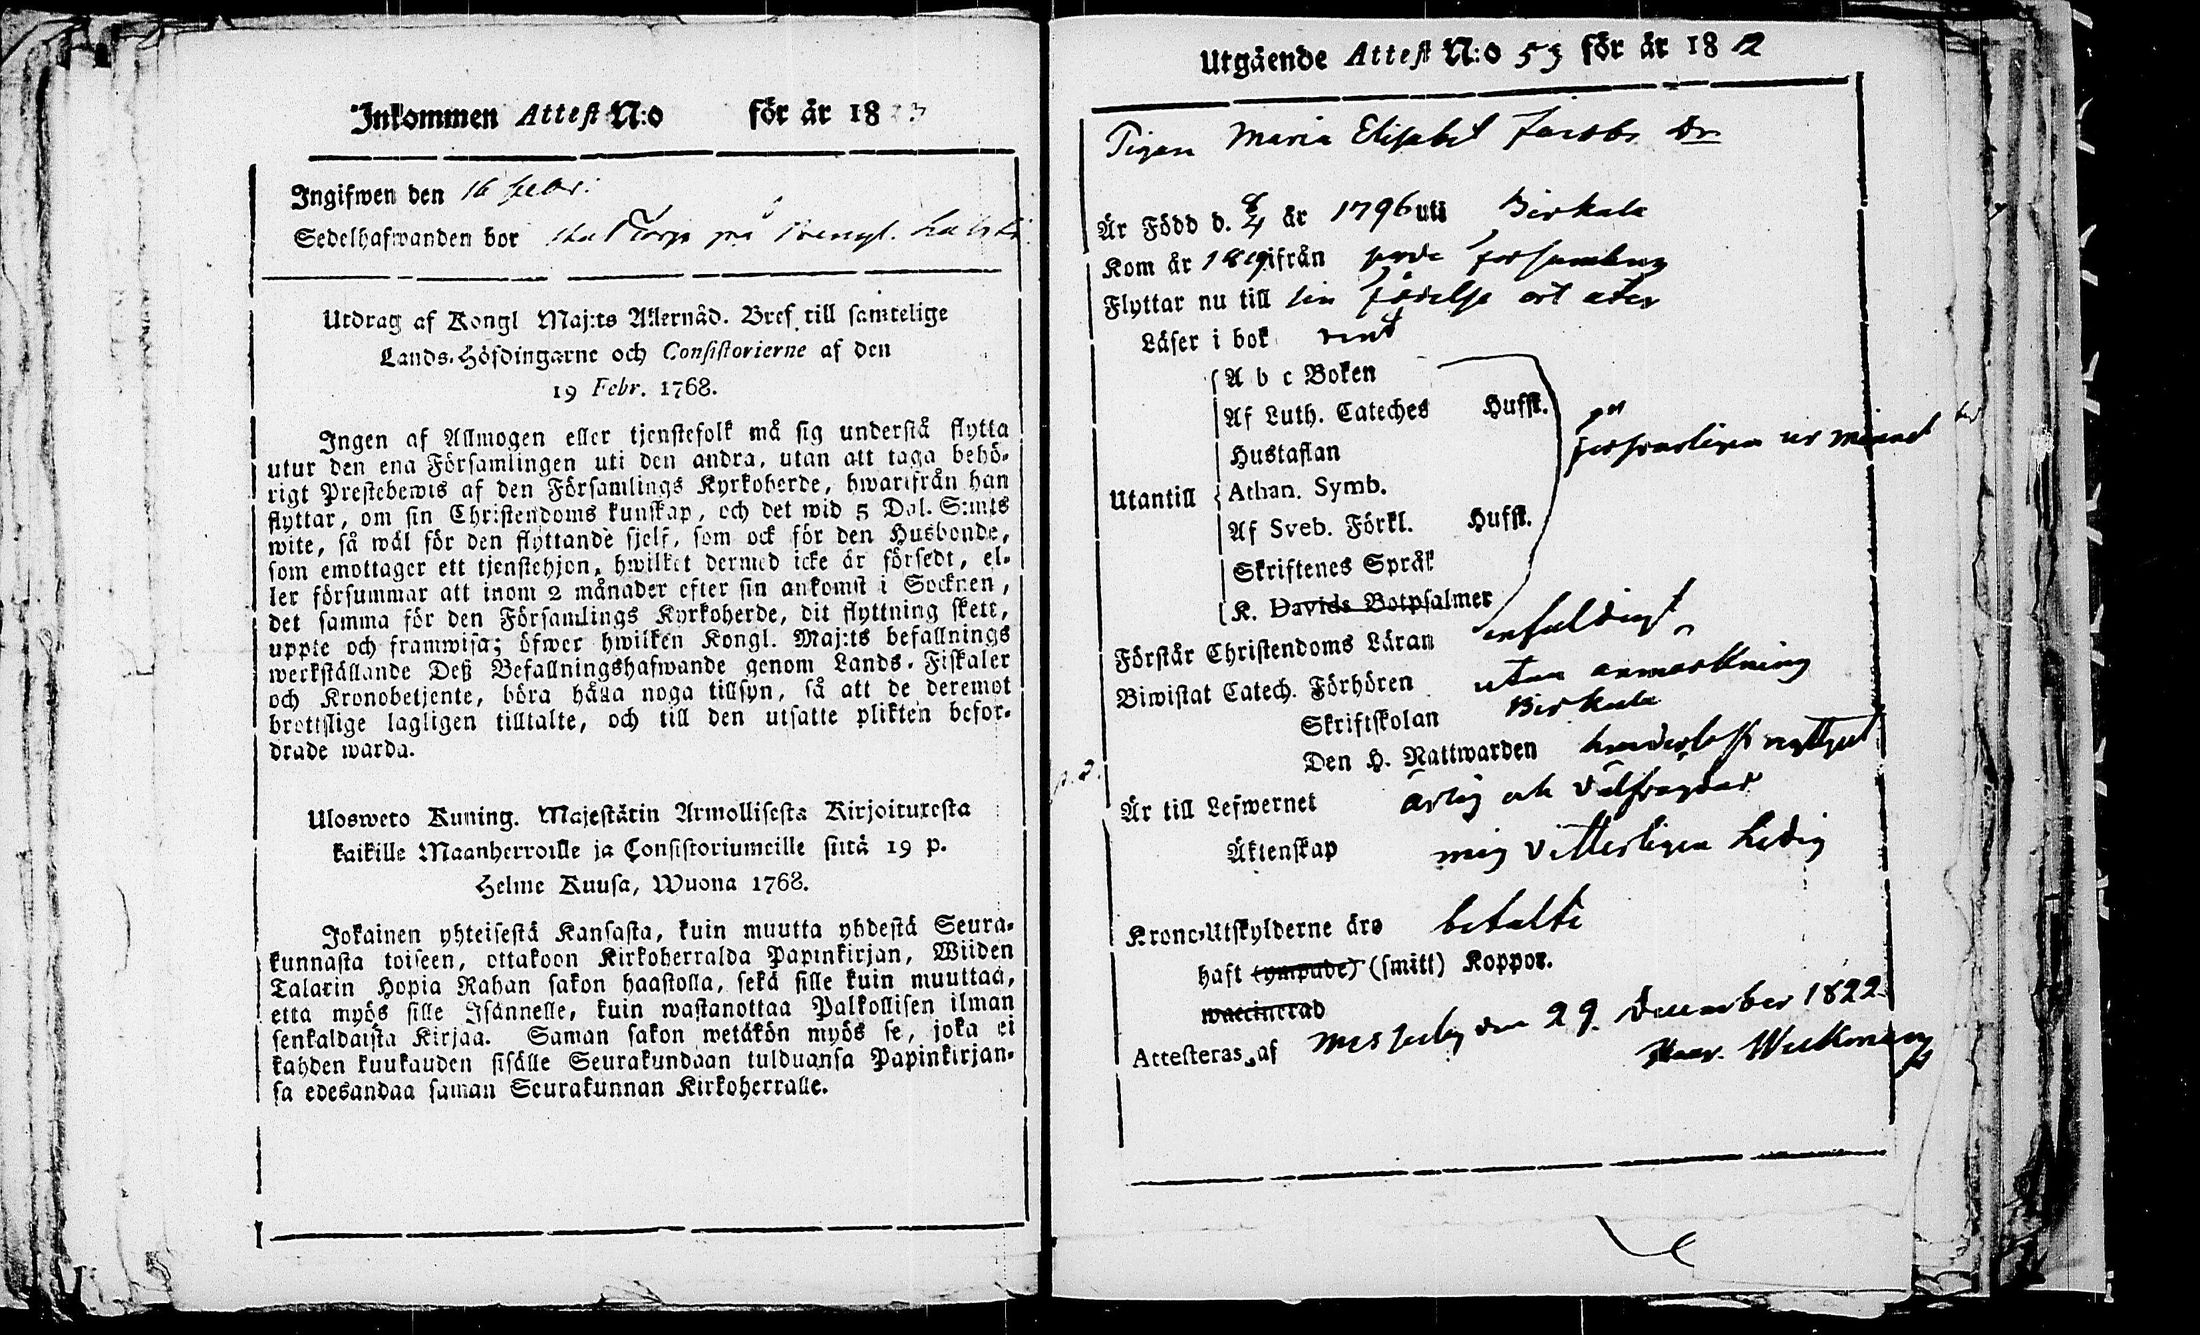 Inkommen Attest N:o för år 18
Ingifwen den 16 febr:
Sedelhafwanden bor på
Utdrag af Kongl Maj:ts Allernåd. Bref till samtelige
Lands-Höfdingarne och Consistorierne af den
19 Febr. 1768.
Ingen af Allmogen eller tjenstefolk må sig understå flytta
utur den ena Församlingen uti den andra, utan att taga behö-
rigt Prestebewis af den Församlings Kyrkoherde, hwarifrån han
flyttar, om sin Christendoms kunskap, och det wid 5 Dal. S:mts
wite, så wäl för den flyttande sjelf, som ock för den Husbonde,
som emottager ett tjenstehjon, hwilket dermed icke är försedt, el-
ler försummar att inom 2 månader efter sin ankomst i Socknen,
det samma för den Församlings Kyrkoherde, dit flyttning skett,
uppte och framwisa; öfwer hwilken Kongl. Maj:ts befallnings
werkställande Deß Befallningshafwande genom Lands-Fiskaler
och Kronobetjente, böra hålla noga tillsyn, så att de deremot
brottslige lagligen tilltalte, och till den utsatte plikten befor-
drade warda.
Ulosweto Kuning. Majestätin Armollisesta Kirjoituxesta
kaikille Maanherroille ja Consistoriumeille siitä 19 p.
Helme Kuusa, Wuona 1768.
Jokainen yhteisestä Kansasta, kuin muutta yhdestä Seura-
kunnasta toiseen, ottakoon Kirkoherralda Papinkirjan, Wiiden
Talarin Hopia Rahan sakon haastolla, sekä sille kuin muuttaa,
etta myös sille Isännelle, kuin wastanottaa Palkollisen ilman
senkaldaista Kirjaa. Saman sakon wetäkön myös se, joka ei
kahden kuukauden sisälle Seurakundaan tulduansa Papinkirjan-
sa edesandaa saman Seurakunnan Kirkoherralle.
Utgående Attest N:o 53 för år 18 22
Pigan Maria Elisabet Jacobs Dr
Är Född d. 8/4 år 1796 uti Birkala
Kom år 1819 ifrån församling
Flyttar nu till sin födelse ort åter
Läser i bok rent
A b c Boken
Af Luth. Cateches Hufst.
Hustaflan
försvarligen ur minnet
Utantill Athan. Symb.
Af Sveb. Förkl. Hufst.
Skriftenes Språk
K. Davids Botpsalmer
Förstår Christendoms Läran enfaldigt
Biwistat Catech. Förhören utan anmärkning
Skriftskolan Birkala
Den H. Nattwarden nyttjat
Är till Lefwernet ärlig och välfrägdad
Äktenskap mig vitterligen ledig
Krono-Utskylderne äro betalte
haft (ympade) (smitt) Koppor.
waccinerad
Attesteras af Messuby den 29. December 1822